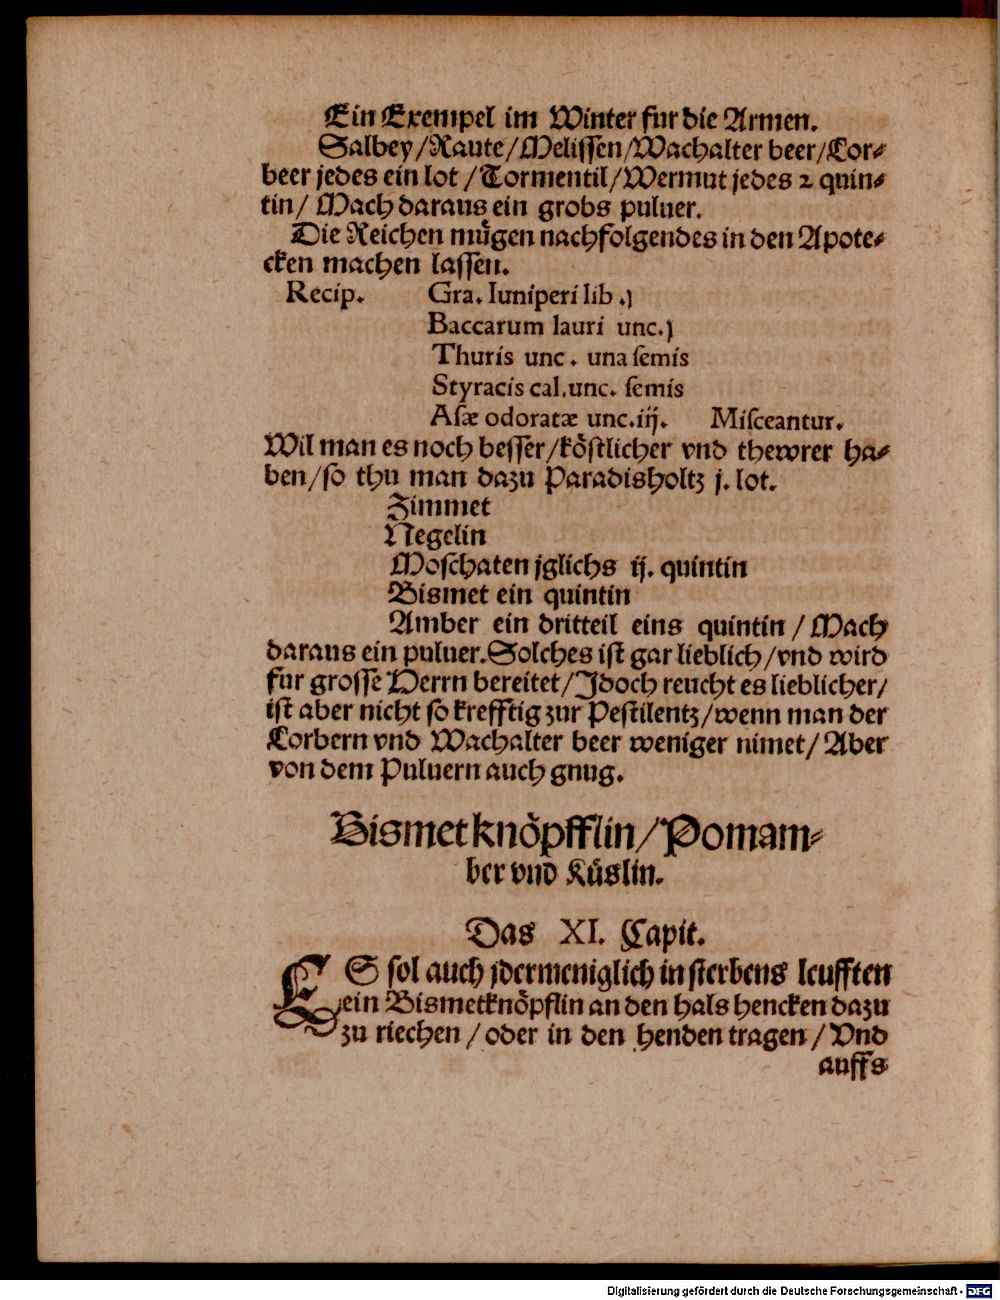 Ein Exempel im Winter fur die Armen.
Salbey/Raute/Melissen/Wachalter beer/Lor⸗
beer jedes ein lot/Tormentil/Wermut jedes 2 quin⸗
tin/ Mach daraus ein grobs puluer.
Die Reichen mügen nachfolgendes in den Apote⸗
cken machen lassen.
Recip. Gra. Iuniperi lib .j
Baccarum lauri unc.j
Thuris unc. una ſemis
Styracis cal.unc. ſemis
Aſæ odoratæ unc.iij. Miſceantur.
Wil man es noch besser/köstlicher vnd thewrer ha⸗
ben/so thu man dazu Paradisholtz j. lot.
Zimmet
Negelin
Moschaten jglichs ij. quintin
Bismet ein quintin
Amber ein dritteil eins quintin / Mach
daraus ein puluer. Solches ist gar lieblich/vnd wird
fur grosse Herrn bereitet/Jdoch reucht es lieblicher/
ist aber nicht so krefftig zur Pestilentz/wenn man der
Lorbern vnd Wachalter beer weniger nimet/ Aber
von dem Puluern auch gnug.
Bismetknöpfflin/Pomam⸗
ber vnd Küslin.
Das XI. Capit.
ES sol auch jdermeniglich in sterbens leufften
ein Bismetknöpflin an den hals hencken dazu
zu riechen / oder in den henden tragen / Vnd
auffs
Digitalisierung gefördert durch die Deutsche Forschungsgemeinschaft - DFG